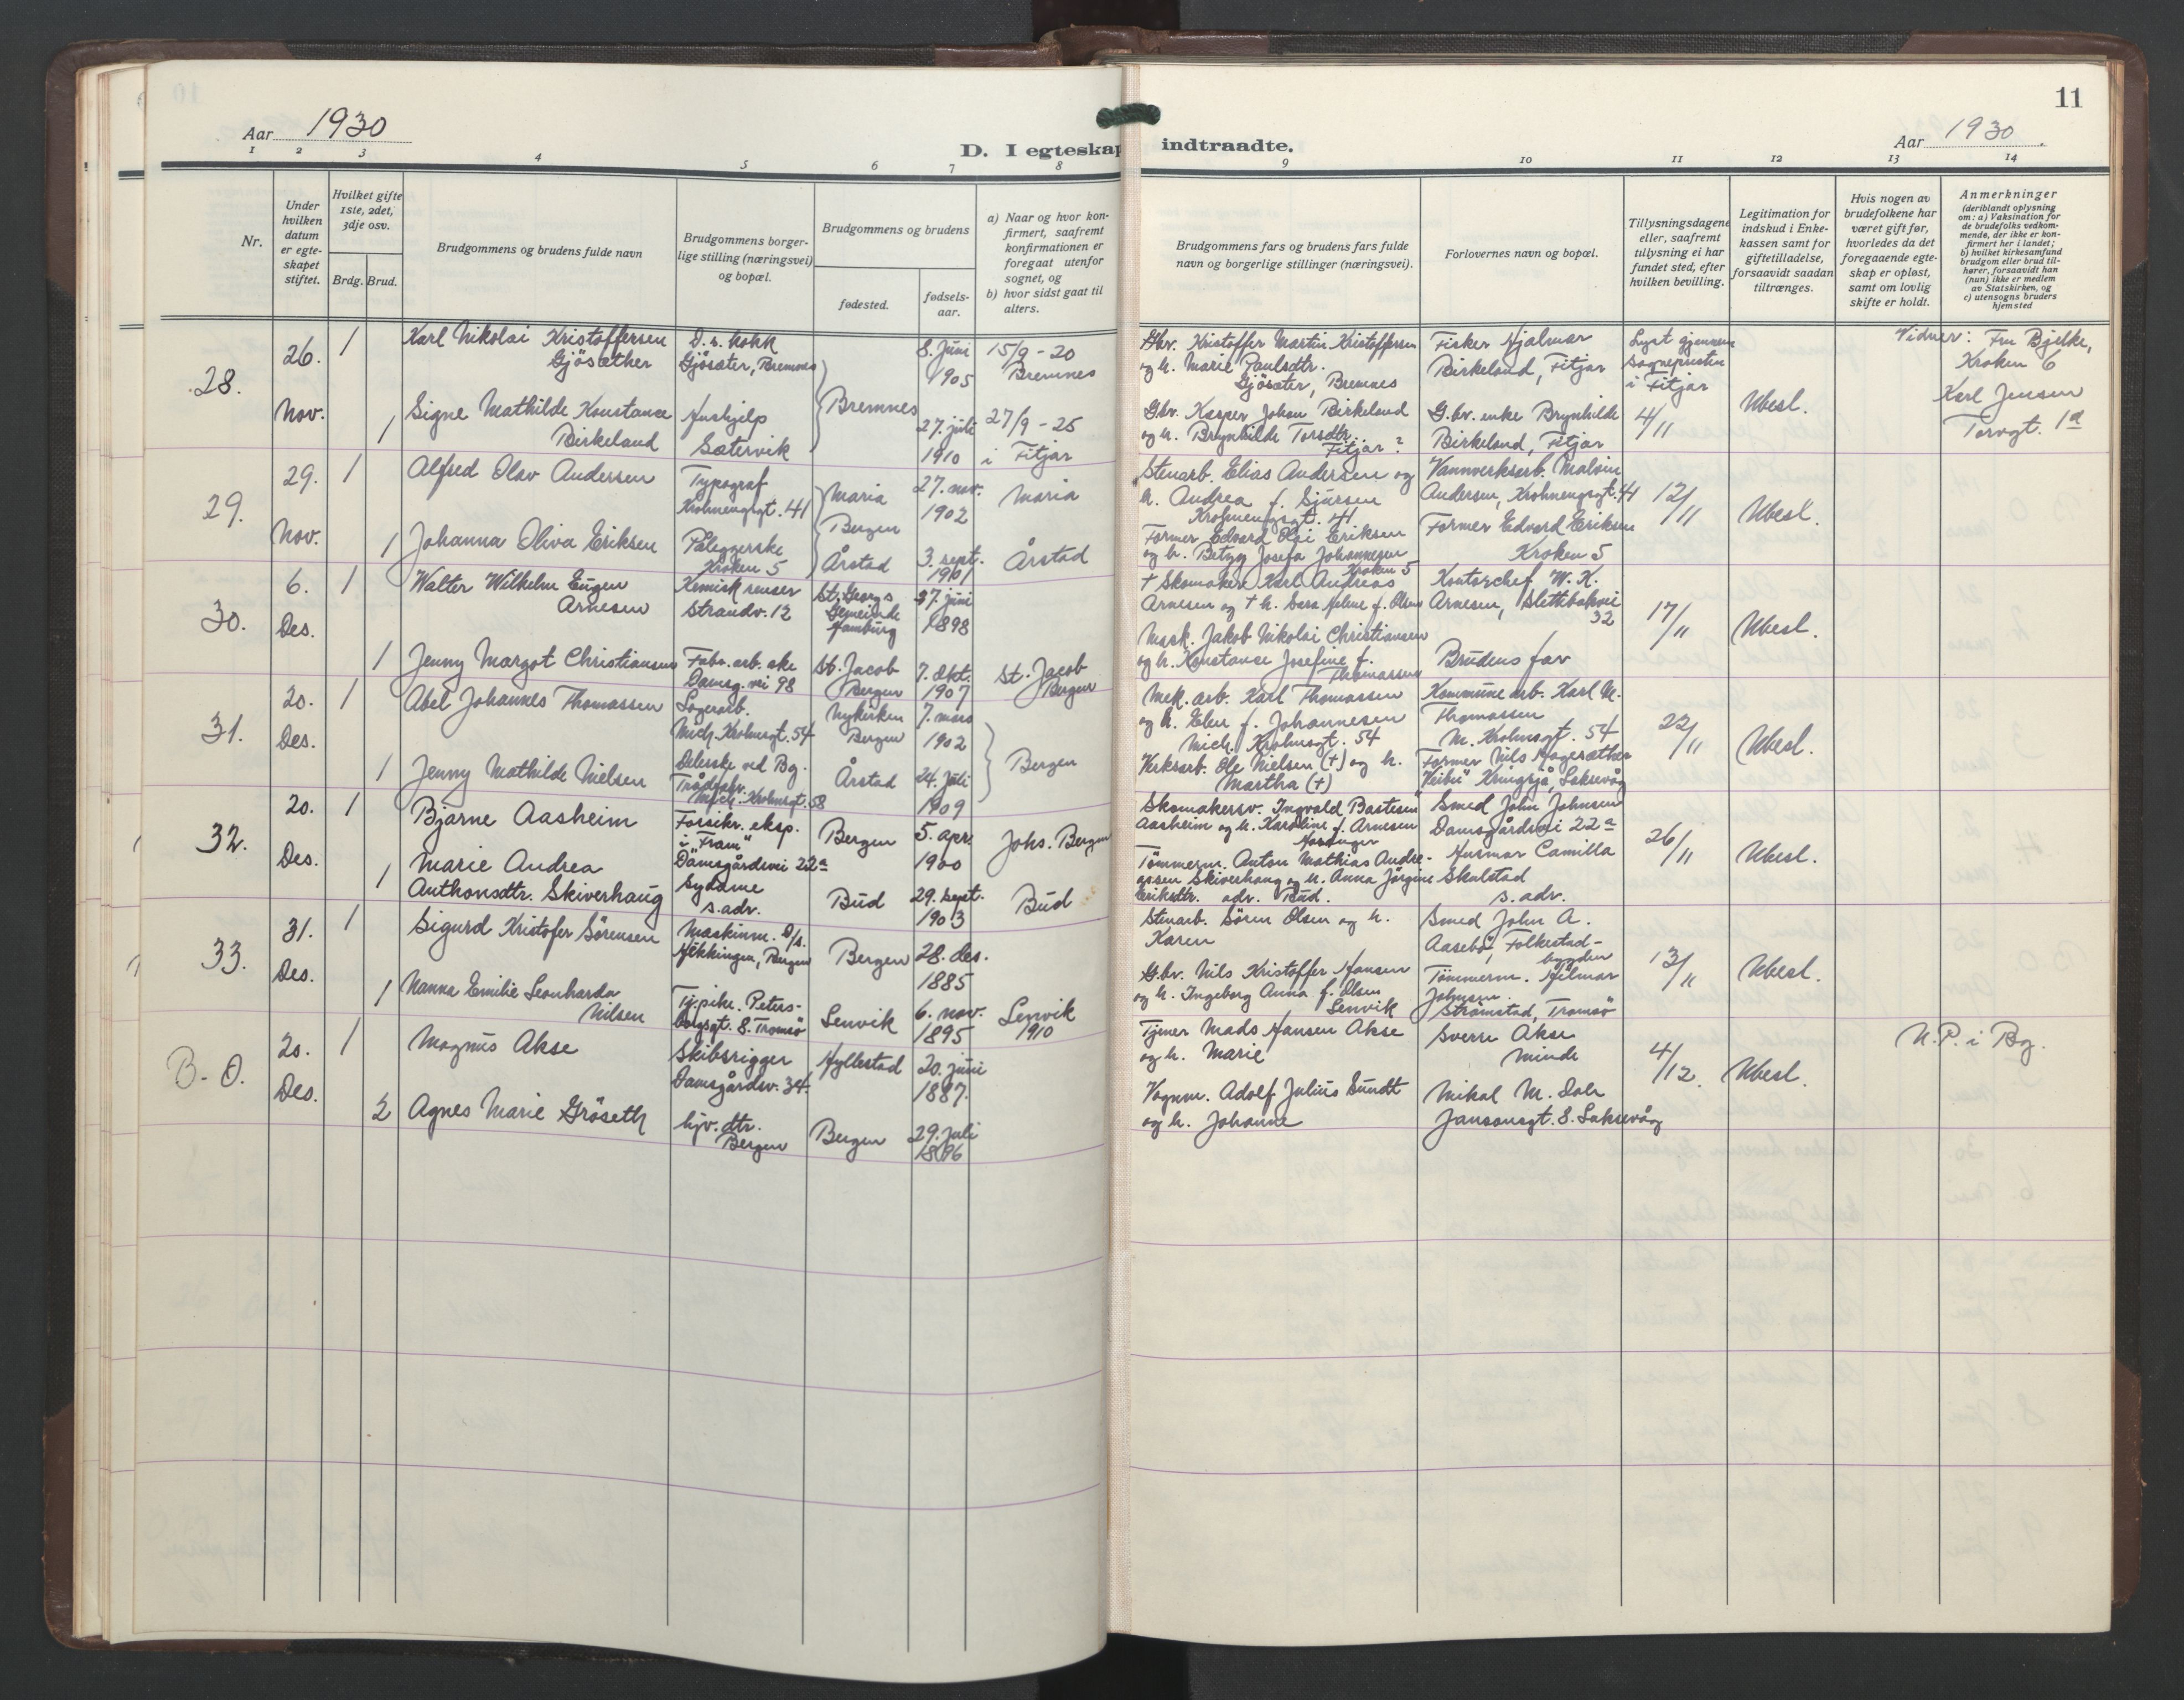 11
Aar 1930
Aar 1930
D. I egteskap indtraadte.
1 2 3 4 5 6 7 8 9 10 11 12 13 14
Nr.
Under hvilken datum er egteskapet stiftet.
Hvilket gifte 1ste, 2det, 3dje osv.
Brdg. Brud.
Brudgommens og brudens fulde navn
Brudgommens borgerlige stilling (næringsvei) og bopæl.
Brudgommens og brudens
fødested.
fødselsaar.
a) Naar og hvor konfirmert, saafremt konfirmationen er foregaat utenfor sognet, og
b) hvor sidst gaat til alters.
Brudgommens fars og brudens fars fulde navn og borgerlige stillinger (næringsvei).
Forlovernes navn og bopæl.
Tillysningsdagene eller, saafremt tillysning ei har fundet sted, efter hvilken bevilling.
Legitimation for indskud i Enkekassen samt for giftetilladelse, forsaavidt saadan tiltrænges.
Hvis nogen av brudefolkene har været gift før, hvorledes da det foregaaende egteskap er opløst, samt om lovlig skifte er holdt.
Anmerkninger
(deriblandt oplysning om: a) Vaksination for de brudefolks vedkommende, der ikke er konfirmert her i landet;
b) hvilket kirkesamfund brudgom eller brud tilhører, forsaavidt han (hun) ikke er medlem av Statskirken, og
c) utensogns bruders hjemsted
28.
26. Nov.
1
Karl Nikolai Kristoffersen
Gjösæther
D.s. kokk
Gjösæter, Bremnes
Bremnes
8. Juni
1905
15/9 - 20
Bremnes
Gbr. Kristoffer Martin Kristoffersen
og h. Marie Paulsdtr.
Gjösæter, Bremnes
Fisker Hjalmar
Birkeland, Fitjar
Lyst gjennem
sognepresten
i Fitjar
4/11
Ubesl.
Vidner: Fru Bjelke,
Kroken 6
Karl Jensen
Torvgt. 1a
1
Signe Mathilde Konstance
Birkeland
Hushjelp
Sætervik
27. juli
1910
27/9 - 25
i Fitjar
Gbr. Kasper Johan Birkeland
og h. Brynhilde Torsdtr.
Fitjar ?
G.br. enke Brynhilde
Birkeland, Fitjar
29.
29. Nov.
1
Alfred Olav Andersen
Typograf
Krohnengsgt. 41
Maria
Bergen
27. nov.
1902
Maria
Stenarb. Elias Andersen og
h. Andrea f. Sjursen
Krohnengsgt. 41
Vannverksarb. Malvin
Andersen, Krohnengsgt. 41
12/11
Ubesl.
1
Johanna Oliva Eriksen
Påleggerske
Kroken 5
Årstad
3. sept.
1901
Årstad
Former Edvard Olai Eriksen
og h. Betzy Josefa Johannesen
Kroken 5
Former Edvard Eriksen
Kroken 5
30.
6. Des.
1
Walter Wilhelm Eugen
Arnesen
Kemisk renser
Strandv. 12
St. Georgs
Gemeinde
Hamburg
27 juni
1898
+ Skomaker Karl Andreas
Arnesen og + h. Sara Helene f. Olsen
Kontorchef W. K.
Arnesen, Slettebakvei
32
17/11
Ubesl.
1
Jenny Margot Christiansen
Fabr. arb. ske
Damsg. vei 98
St. Jacob
Bergen
7. Okt.
1907
St. Jacob
Bergen
Mask. Jakob Nikolai Christiansen
og h. Konstanse Josefine f.
Thomassen
Brudens far
31.
20. Des.
1
Abel Johannes Thomassen
Lagerarb.
Mich. Krohnsgt. 54
Nykirken
Bergen
7. mars
1902
Bergen
Mek. arb. Karl Thomassen
og h. Elen f. Johannesen
Mich. Krohnsgt. 54
Kommune arb. Karl M.
Thomassen
M. Krohnsgt. 54
22/11
Ubesl.
1
Jenny Mathilde Nielsen
Delerske ved Bg.
Trådfabr.
Mich. Krohnsgt. 58
Årstad
24. juli
1909
Verksarb. Ole Nielsen (+) og h.
Martha (+)
Former Nils Hagesæther
"Veibu" Kringsjå, Laksevåg
32.
20. Des.
1
Bjarne Aasheim
Forsikr. eksp.
i "Fram"
Damsgårdsvei 22a
Bergen
5. apr.
1900
Johs. Bergen
Skomakersv. Ingvald Bastesen
Aasheim og h. Karoline f. Arnesen
Smed John Johnsen
Damsgårdsvei 22a
26/11
Ubesl.
1
Marie Andrea
Anthonsdtr. Skiverhaug
Sydame
s. adr.
Bud
29. sept.
1903
Bud
Tömmerm. Anton Mathias Andreassen Skiverhaug og h. Anna Jörgine
Eriksdtr. adr. Bud.
Husmor Camilla
Skulstad
s. adr.
33.
31. Des.
1
Sigurd Kristofer Sörensen
Maskinm. D/s.
Hekkingen, Bergen
Bergen
28. des.
1885
Stenarb. Sören Olsen og h.
Karen
Smed John A.
Aasebö, Folkestadbygden
13/11
Ubesl.
1
Nanna Emilie Leonharda
Nilsen
Tj. pike. Petersborgsgt. 8. Tromsö
Lenvik
6. nov.
1895
Lenvik
1910
G.br. Nils Kristoffer Hansen
og h. Ingeborg Anna f. Olsen
Lenvik
Tömmerm. Hilmar
Johnsen
Strömstad, Tromsö
B. O.
20. Des.
1
Magnus Akse
Skibsrigger
Damsgårdsv. 34.
Hyllestad
20. juni
1887.
Tjener Mads Hansen Akse
og h. Marie
Sverre Akse
Minde
4/12.
Ubesl.
N. P. i Bg.
2
Agnes Marie Gröseth
hjv. dtr.
Bergen
Bergen
29. Juli
1896
Vognm. Adolf Julius Sundt
og h. Johanne
Mikal M. Dale
Jansonsgt. 8. Laksevåg